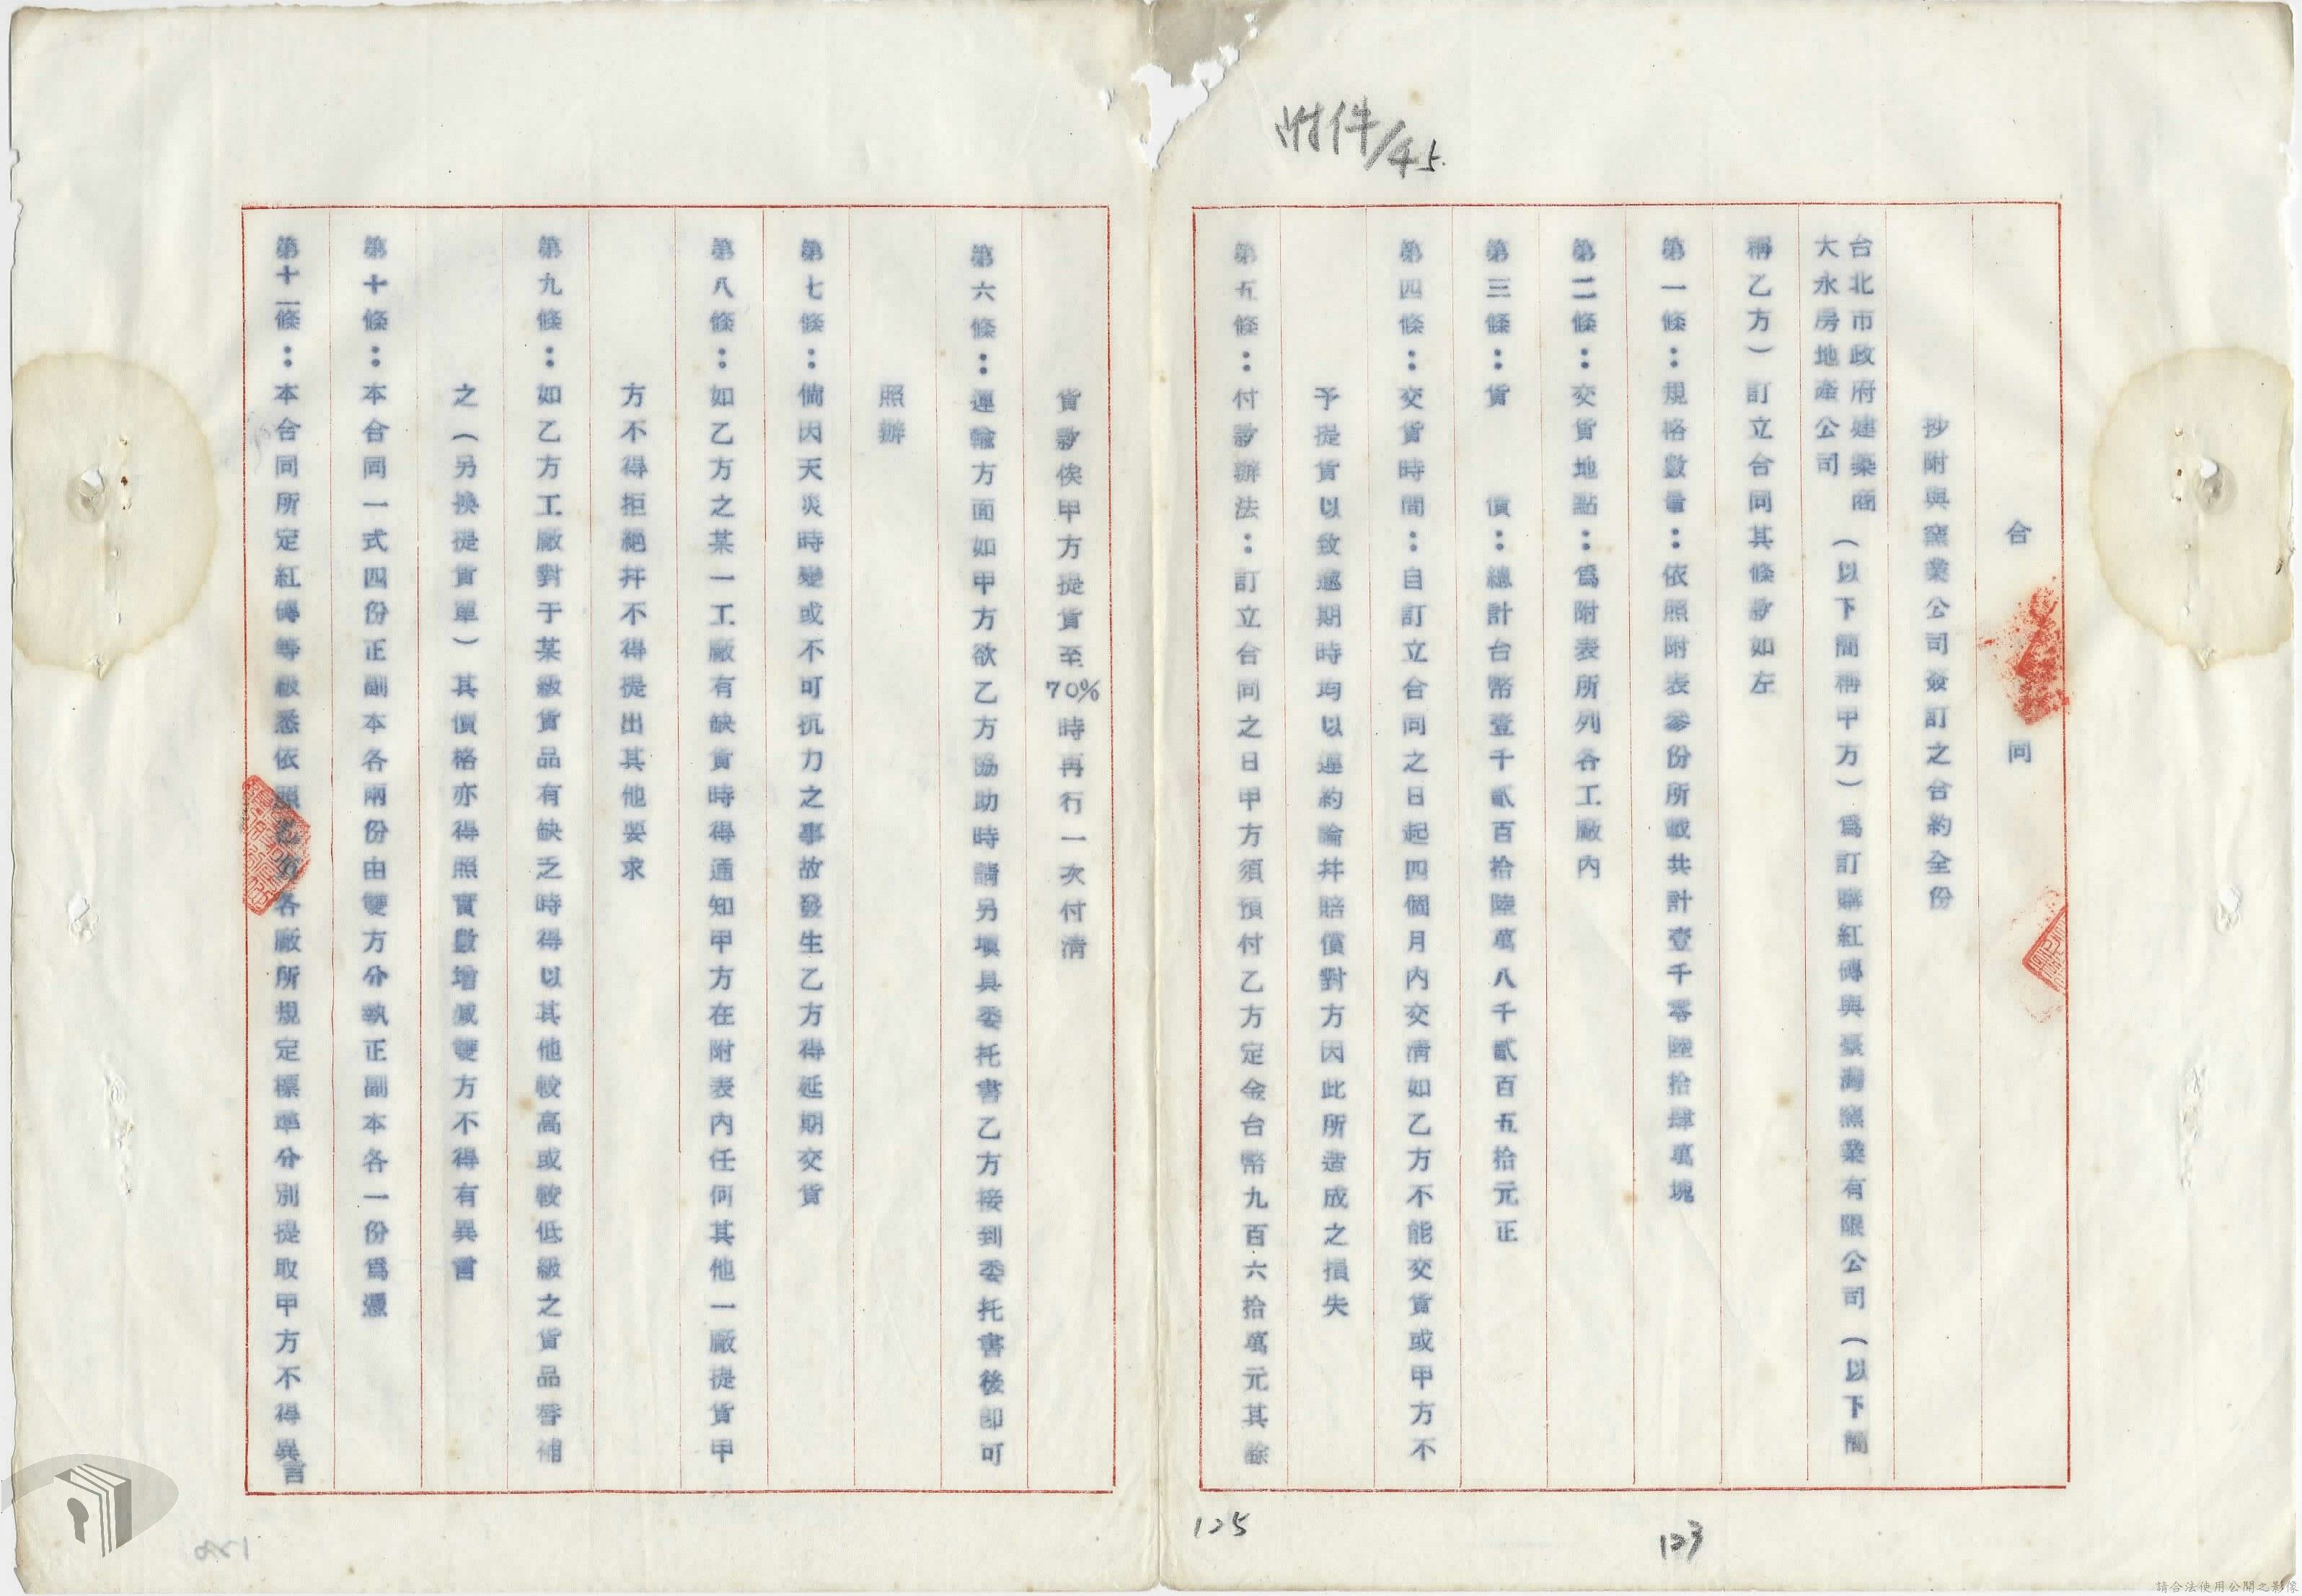 附件/45.
合同
抄附與窯業公司簽訂之合約全份
台北市政府建築商
大永房地產公司
(以下簡稱甲方)爲訂購紅磚與臺灣窯業有限公司(以下簡
稱乙方)訂立合同其條款如左
第一條：規格數量：依照附表參份所載共計壹千零陸拾肆萬塊
第二條：交貨地點：爲附表所列各工廠內
第三條：貨價：總計台幣壹千貳百拾陸萬八千貳百五拾元正
第四條：交貨時間：自訂立合同之日起四個月內交清如乙方不能交貨或甲方不
予提貨以致逾期時均以違約論幷賠償對方因此所造成之損失
第五條：付款辦法：訂立合同之日甲方須預付乙方定金台幣九百六拾萬元其餘
貨款俟甲方提貨至70%時再行一次付清
第六條：運輸方面如甲方欲乙方協助時請另塡具委托書乙方接到委托書後卽可
照辦
第七條：倘因天災時變或不可抗力之事故發生乙方得延期交貨
第八條：如乙方之某一工廠有缺貨時得通知甲方在附表內任何其他一廠提貨甲
方不得拒絕幷不得提出其他要求
第九條：如乙方工廠對于某級貨品有缺乏時得以其他較高或較低級之貨品替補
之(另換提貨單)其價格亦得照實數增減雙方不得有異言
第十條：本合同一式四份正副本各兩份由雙方分執正副本各一份爲憑
第十一條：本合同所定紅磚等級悉依照乙方各廠所規定標準分別提取甲方不得異言
125
123
請合法使用公開之影像